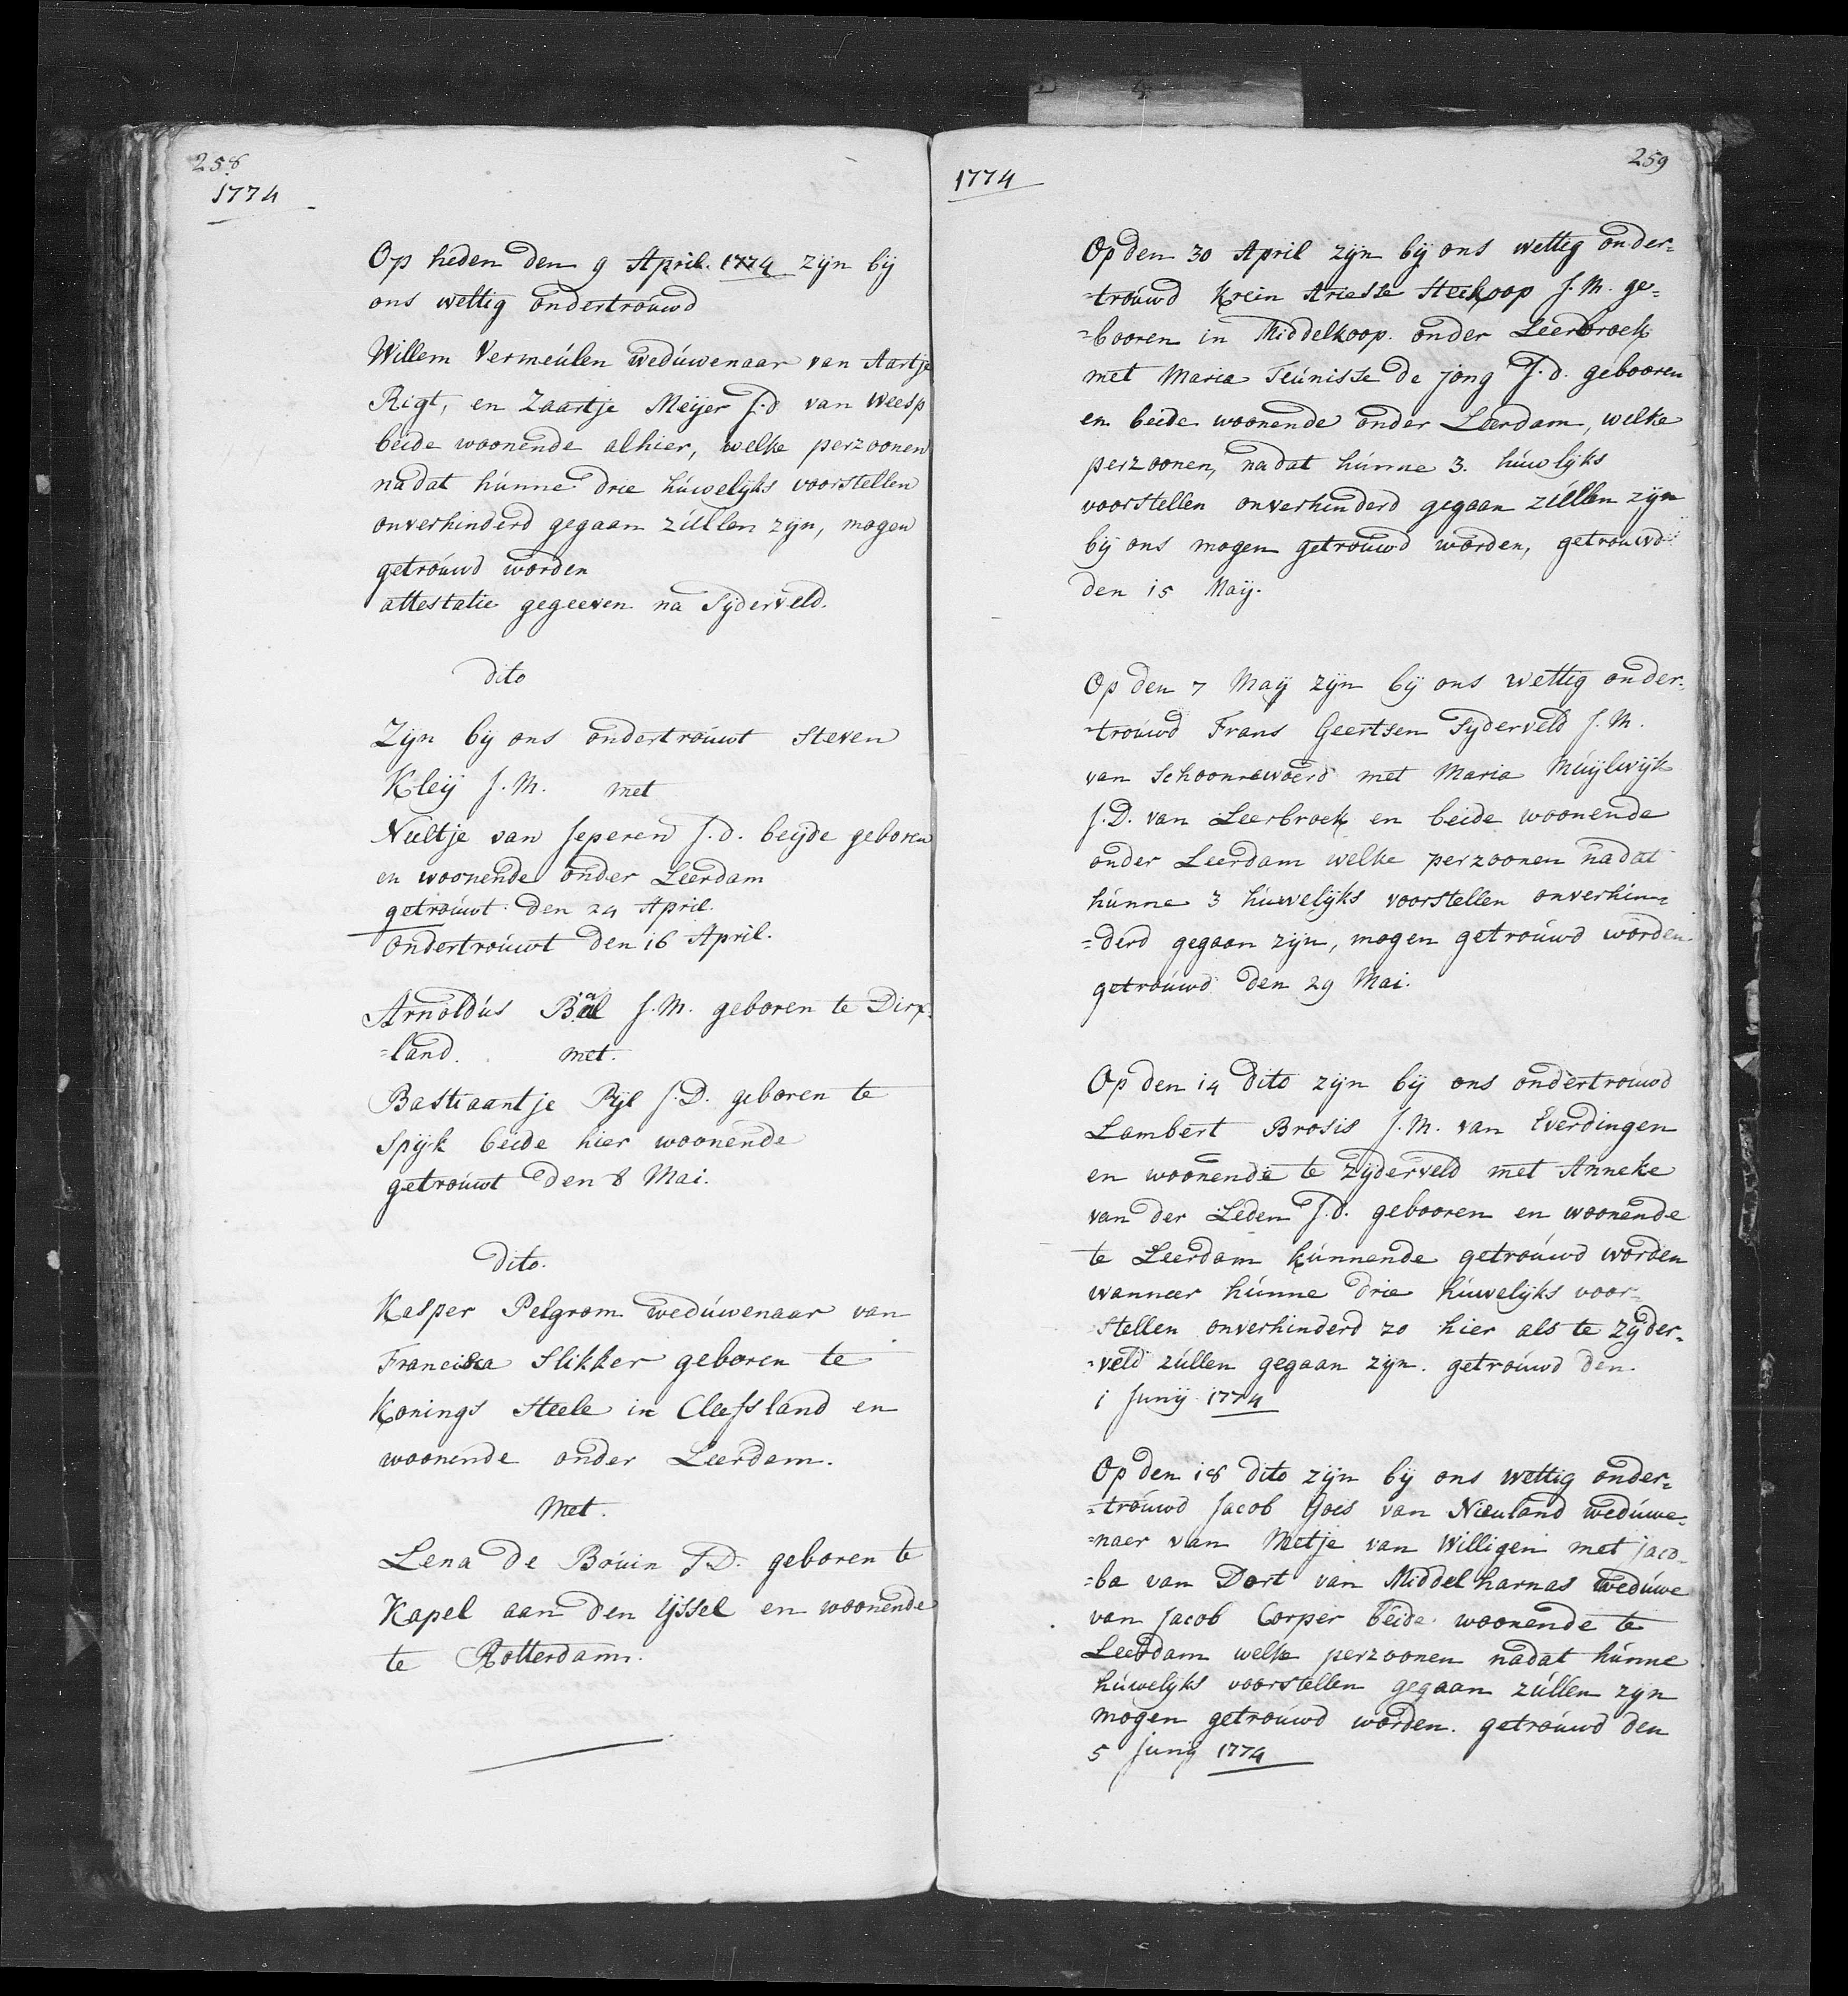 258
1774
Op heden den 9 April. 1774 zijn bij
ons wettig ondertrouwd
Willem Vermeulen weduwenaar van Aartje
Rigt, en Zaartje Meijer J.d van Weesp
beide woonende alhier, welke perzoonen
nadat hunne drie huwelijks voorstellen
onverhinderd gegaan zullen zijn, mogen
getrouwd worden
attestatie gegeeven na Sijderveld.
dito
Zijn bij ons ondertrouwt Steven
Kleij J.M. met
Neeltje van Jeperen J.d. beijde geboren
en woonende onder Leerdam
getrouwt den 24 April.
ondertrouwt den 16 April.
Arnoldus J.M. geboren te Dirx-
=land. met.
Bastiaantje Pijl J.D. geboren te
Spijk beide hier woonende
getrouwt den 8 Mai.
dito.
Kasper Pelgrom weduwenaar van
Franciska Slikker geboren te
Konings Steele in Cleefsland en
woonende onder Leerdam.
Met.
Lena de Bouin J.D. geboren te
Kapel aan den Ijssel en woonende
te Rotterdam.
1774
259
Op den 30 April zijn bij ons wettig onder=
=trouwd Krein Ariesse Steikoop J.M. ge=
=booren in Middelkoop. onder Leerbroek
met Maria Teunisse de jong J.d. gebooren
en beide woonende onder Leerdam, welke
perzoonen, nadat hunne 3. huwlijks
voorstellen onverhinderd gegaan zullen zijn
bij ons mogen getrouwd worden, getrouwd
den 15 Maij.
Op den 7 Maij zijn bij ons wettig onder=
=trouwd Frans Geertsen Sijderveld J.M.
van Schoonrewoerd met Maria Muijlwijk
J.D. van Leerbroek en beide woonende
onder Leerdam welke perzoonen nadat
hunne 3 huwelijks voorstellen onverhin=
=derd gegaan zijn, mogen getrouwd worden
getrouwd den 29 Mai.
Op den 14 dito zijn bij ons ondertrouwd
Lambert Brosis J.M. van Everdingen
en woonende te Zijderveld met Anneke
van der Leden J.d. gebooren en woonende
te Leerdam kunnende getrouwd worden
wanneer hunne drie huwelijks voor=
stellen onverhinderd zo hier als te Zijder=
=veld zullen gegaan zijn. getrouwd den
1 Junij 1774
Op den 18 dito zijn bij ons wettig onder=
=trouwd Jacob Goes van Nieuland weduwe=
=naer van Metje van Willigen met jaco=
=ba van Dort van Middelharnas weduwe
van Jacob Corper beide woonende te
Leerdam welke perzoonen nadat hunne
huwelijks voorstellen gegaan zullen zijn
mogen getrouwd worden. getrouwd den
5 Junij 1774